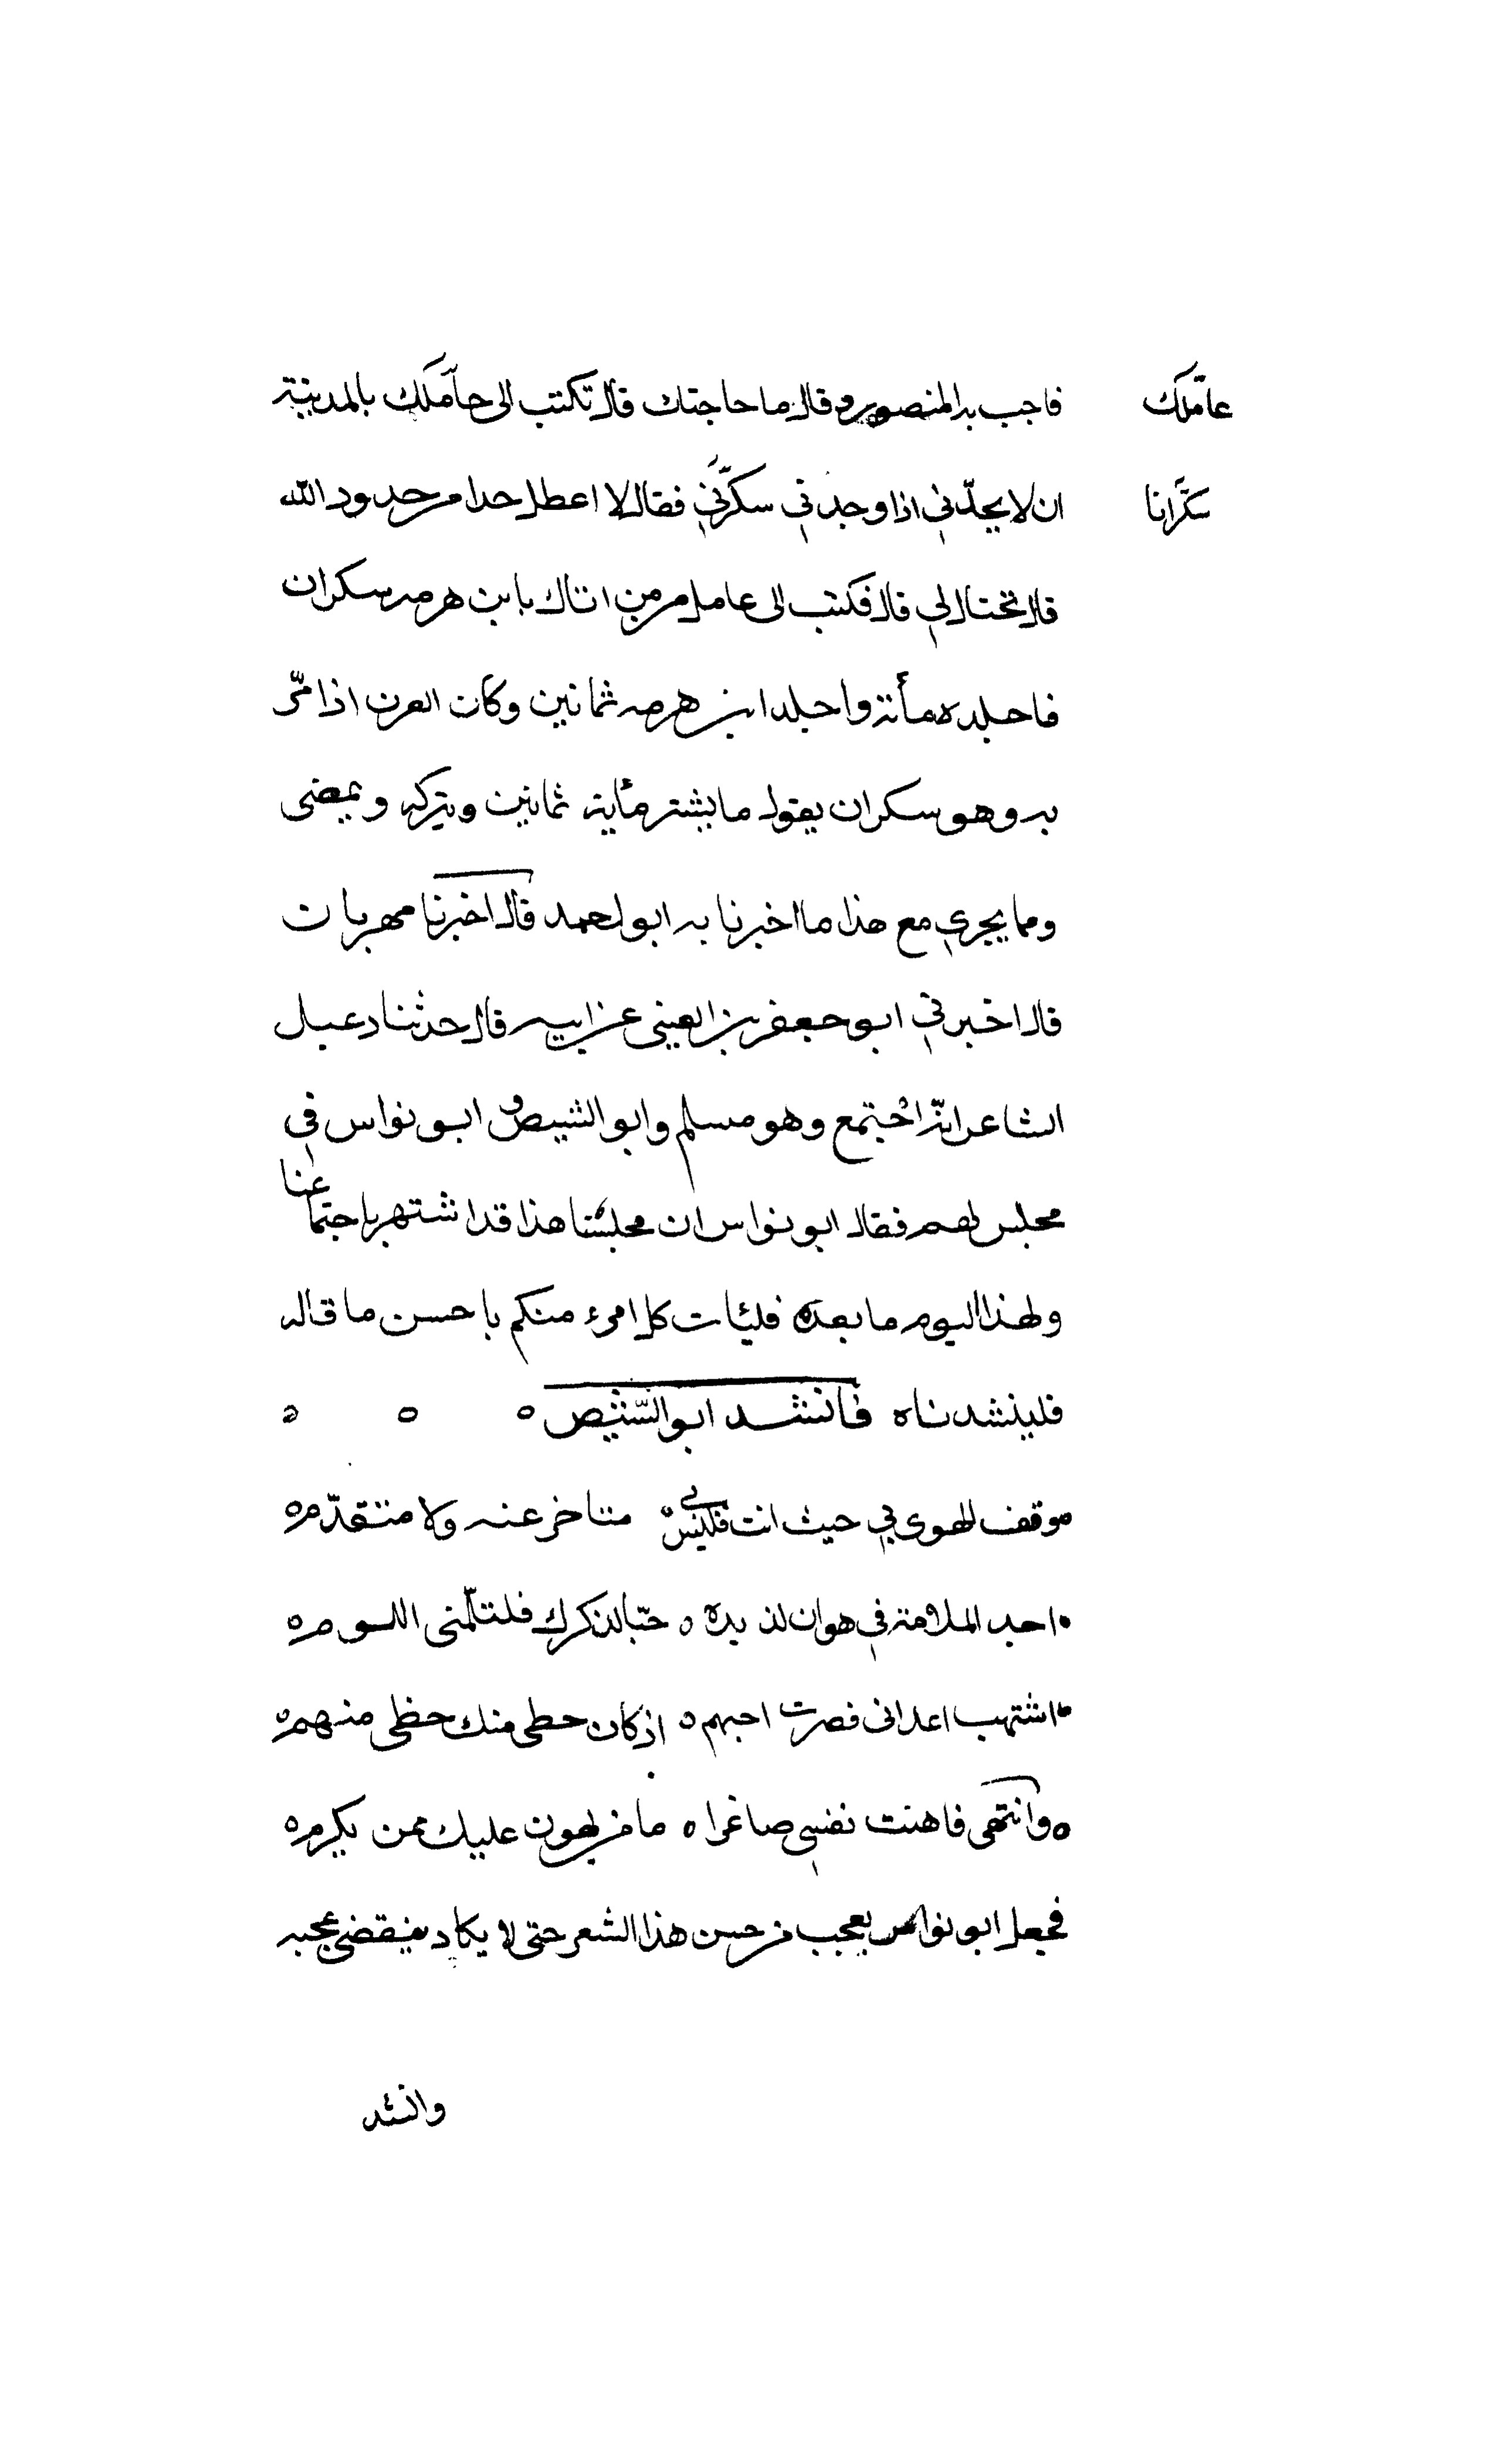 فاجب به المنصور وقال ما حاجتك قال تكتب الى حاملك بالمدينة
عاملك
ان لا يحدّني اذا وجدني سكرّني فقال لا اعطل حدا من حدود الله
سكرانا
قال تحتال لي قال فكتب الى عامله من اتاك بابن هرمه سكران
فاجلده مأته واجلد ابن هرمه ثمانين وكان العون اذا مرّ
به وهو سكران يقول ما يشتر مأية ثمانين ويتركه ويمضى
ومما يجري مع هذا ما اخبرنا به ابو احمد قال اخبرنا مهربات
قال اخبرني ابو جعفر بن العيني عن ابيه قال حدثنا دعبل
الشاعر انّه اجتمع وهو مسلم وابو الشيص و ابو نواس في
مجلس لهم فقال ابو نواس ان مجلسنا هذا قد اشتهر باجتماعنا
ولهذا اليوم ما بعده فليات كل امرء منكم باحسن ما قاله
فلينشدناه فانشد ابو الشيص ه ه ه
موقف الهوى بي حيث انت فليس لي متاخر عنه ولا متقدّم ه
اجد الملامة في هوان لذيدة ه حبّا لذكرك فلتلمّنى اللوم ه
اشتهب اعدانى فصرت احبهم ه اذ كان حطى منك حظى منهم ه
ه وانتهى فاهنت نفسي صاغرا ه ما من لهون عليك ممن يكرم ه
فجعل ابو نواس يعجب من حسن هذا الشعر حتى لا يكاد ينقضى عجبه
وانشد